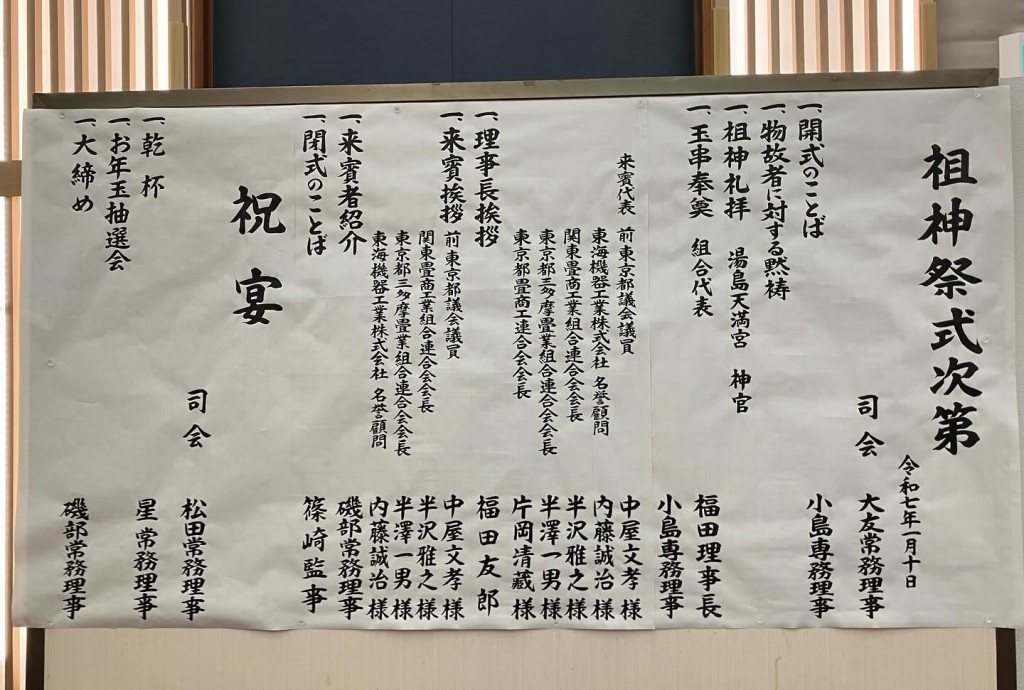 祖神祭式次第
令和七年一月十日
司会 大友常務理事
一、開式のことば 小島専務理事
一、物故者に対する黙祷
一、祖神礼拝 湯島天満宮 神官
一、玉串奉奠 組合代表 福田理事長
小島専務理事
来賓代表 前東京都議会議員 中屋文孝様
東海機器工業株式会社 名誉顧問 内藤誠治様
関東畳商工業組合連合会会長 半沢雅之様
東京都三多摩畳業組合連合会会長 半澤一男様
東京都畳商工連合会会長 片岡清蔵様
一、理事長挨拶 福田友郎
一、来賓挨拶 前東京都議会議員 中屋文孝様
関東畳商工業組合連合会会長 半沢雅之様
東京都三多摩畳業組合連合会会長 半澤一男様
東海機器工業株式会社 名誉顧問 内藤誠治様
一、来賓者紹介 磯部常務理事
一、閉式のことば 篠崎監事
祝宴
司会 松田常務理事
一、乾杯 星常務理事
一、お年玉抽選会
一、大締め 磯部常務理事